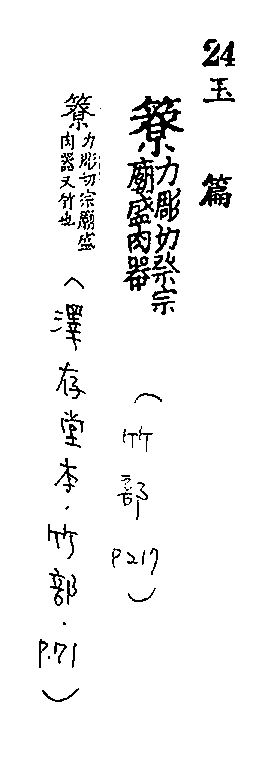 24
玉篇
簝力彫切祭宗
廟盛肉器
(竹部 P217)
簝力彫切宗廟盛
肉器又竹也
(澤存堂本.竹部.P.71)